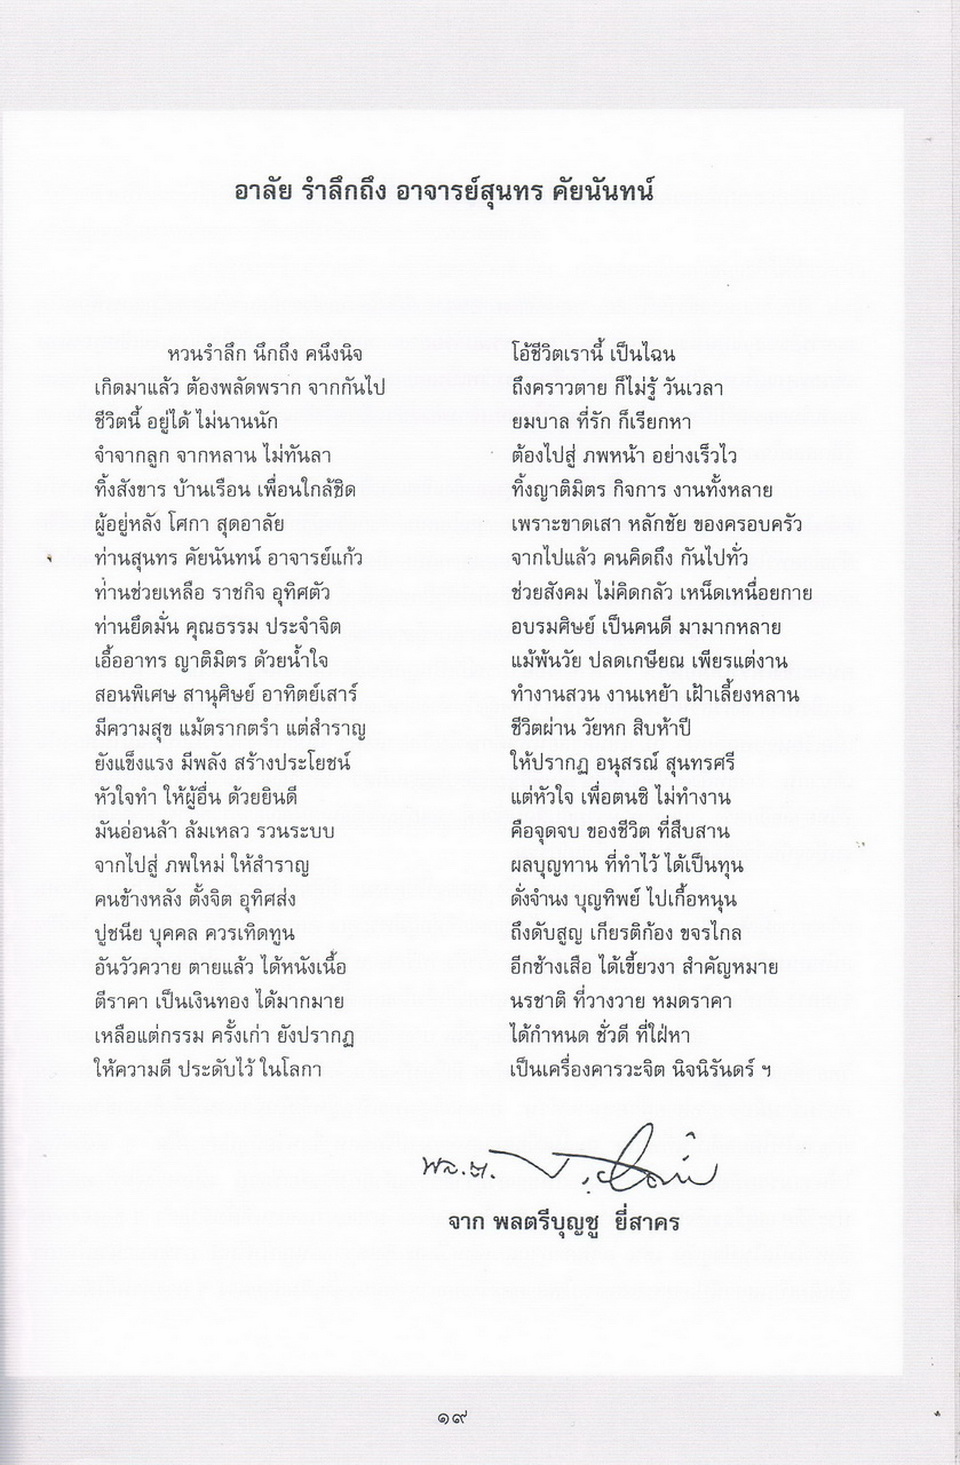 อาลัย รำลึกถึง อาจารย์สุนทร คัยนันทน์
หวนรำลึก นึกถึง คนึงนิจ โอ้ชีวิตเรานี้ เป็นไฉน
เกิดมาแล้ว ต้องพลัดพราก จากกันไป ถึงคราวตาย ก็ไม่รู้ วันเวลา
ชีวิตนี้ อยู่ได้ ไม่นานนัก ยมบาล ที่รัก ก็เรียกหา
จำจากลูก จากหลาน ไม่ทันลา ต้องไปสู่ ภพหน้า อย่างเร็วไว
ทิ้งสังขาร บ้านเรือน เพื่อนใกล้ชิด ทิ้งญาติมิตร กิจการ งานทั้งหลาย
ผู้อยู่หลัง โศกา สุดอาลัย เพราะขาดเสา หลักชัย ของครอบครัว
ท่านสุนทร คัยนันทน์ อาจารย์แก้ว จากไปแล้ว คนคิดถึง กันไปทั่ว
ท่านช่วยเหลือ ราชกิจ อุทิศตัว ช่วยสังคม ไม่คิดกลัว เหน็ดเหนื่อยกาย
ท่านยึดมั่น คุณธรรม ประจำจิต อบรมศิษย์ เป็นคนดี มามากหลาย
เอื้ออาทร ญาติมิตร ด้วยน้ำใจ แม้พ้นวัย ปลดเกษียณ เพียรแต่งาน
สอนพิเศษ สานุศิษย์ อาทิตย์เสาร์ ทำงานสวน งานเหย้า เฝ้าเลี้ยงหลาน
มีความสุข แม้ตรากตรำ แต่สำราญ ชีวิตผ่าน วัยหก สิบห้าปี
ยังแข็งแรง มีพลัง สร้างประโยชน์ ให้ปรากฏ อนุสรณ์ สุนทรศรี
หัวใจทำ ให้ผู้อื่น ด้วยยินดี แต่หัวใจ เพื่อตนซิ ไม่ทำงาน
มันอ่อนล้า ล้มเหลว รวนระบบ คือจุดจบ ของชีวิต ที่สืบสาน
จากไปสู่ ภพใหม่ ให้สำราญ ผลบุญทาน ที่ทำไว้ ได้เป็นทุน
คนข้างหลัง ตั้งจิต อุทิศส่ง ดั่งจำนง บุญทิพย์ ไปเกื้อหนุน
ปูชนีย บุคคล ควรเทิดทูน ถึงดับสูญ เกียรติก้อง ขจรไกล
อันวัวควาย ตายแล้ว ได้หนังเนื้อ อีกช้างเสือ ได้เขี้ยวงา สำคัญหมาย
ตีราคา เป็นเงินทอง ได้มากมาย นรชาติ ที่วางวาย หมดราคา
เหลือแต่กรรม ครั้งเก่า ยังปรากฏ ได้กำหนด ชั่วดี ที่ใฝ่หา
ให้ความดี ประดับไว้ ในโลกา เป็นเครื่องคารวะจิต นิจนิรันดร์ ฯ
พล.ต.
จาก พลตรีบุญชู ยี่สาคร
๑๙